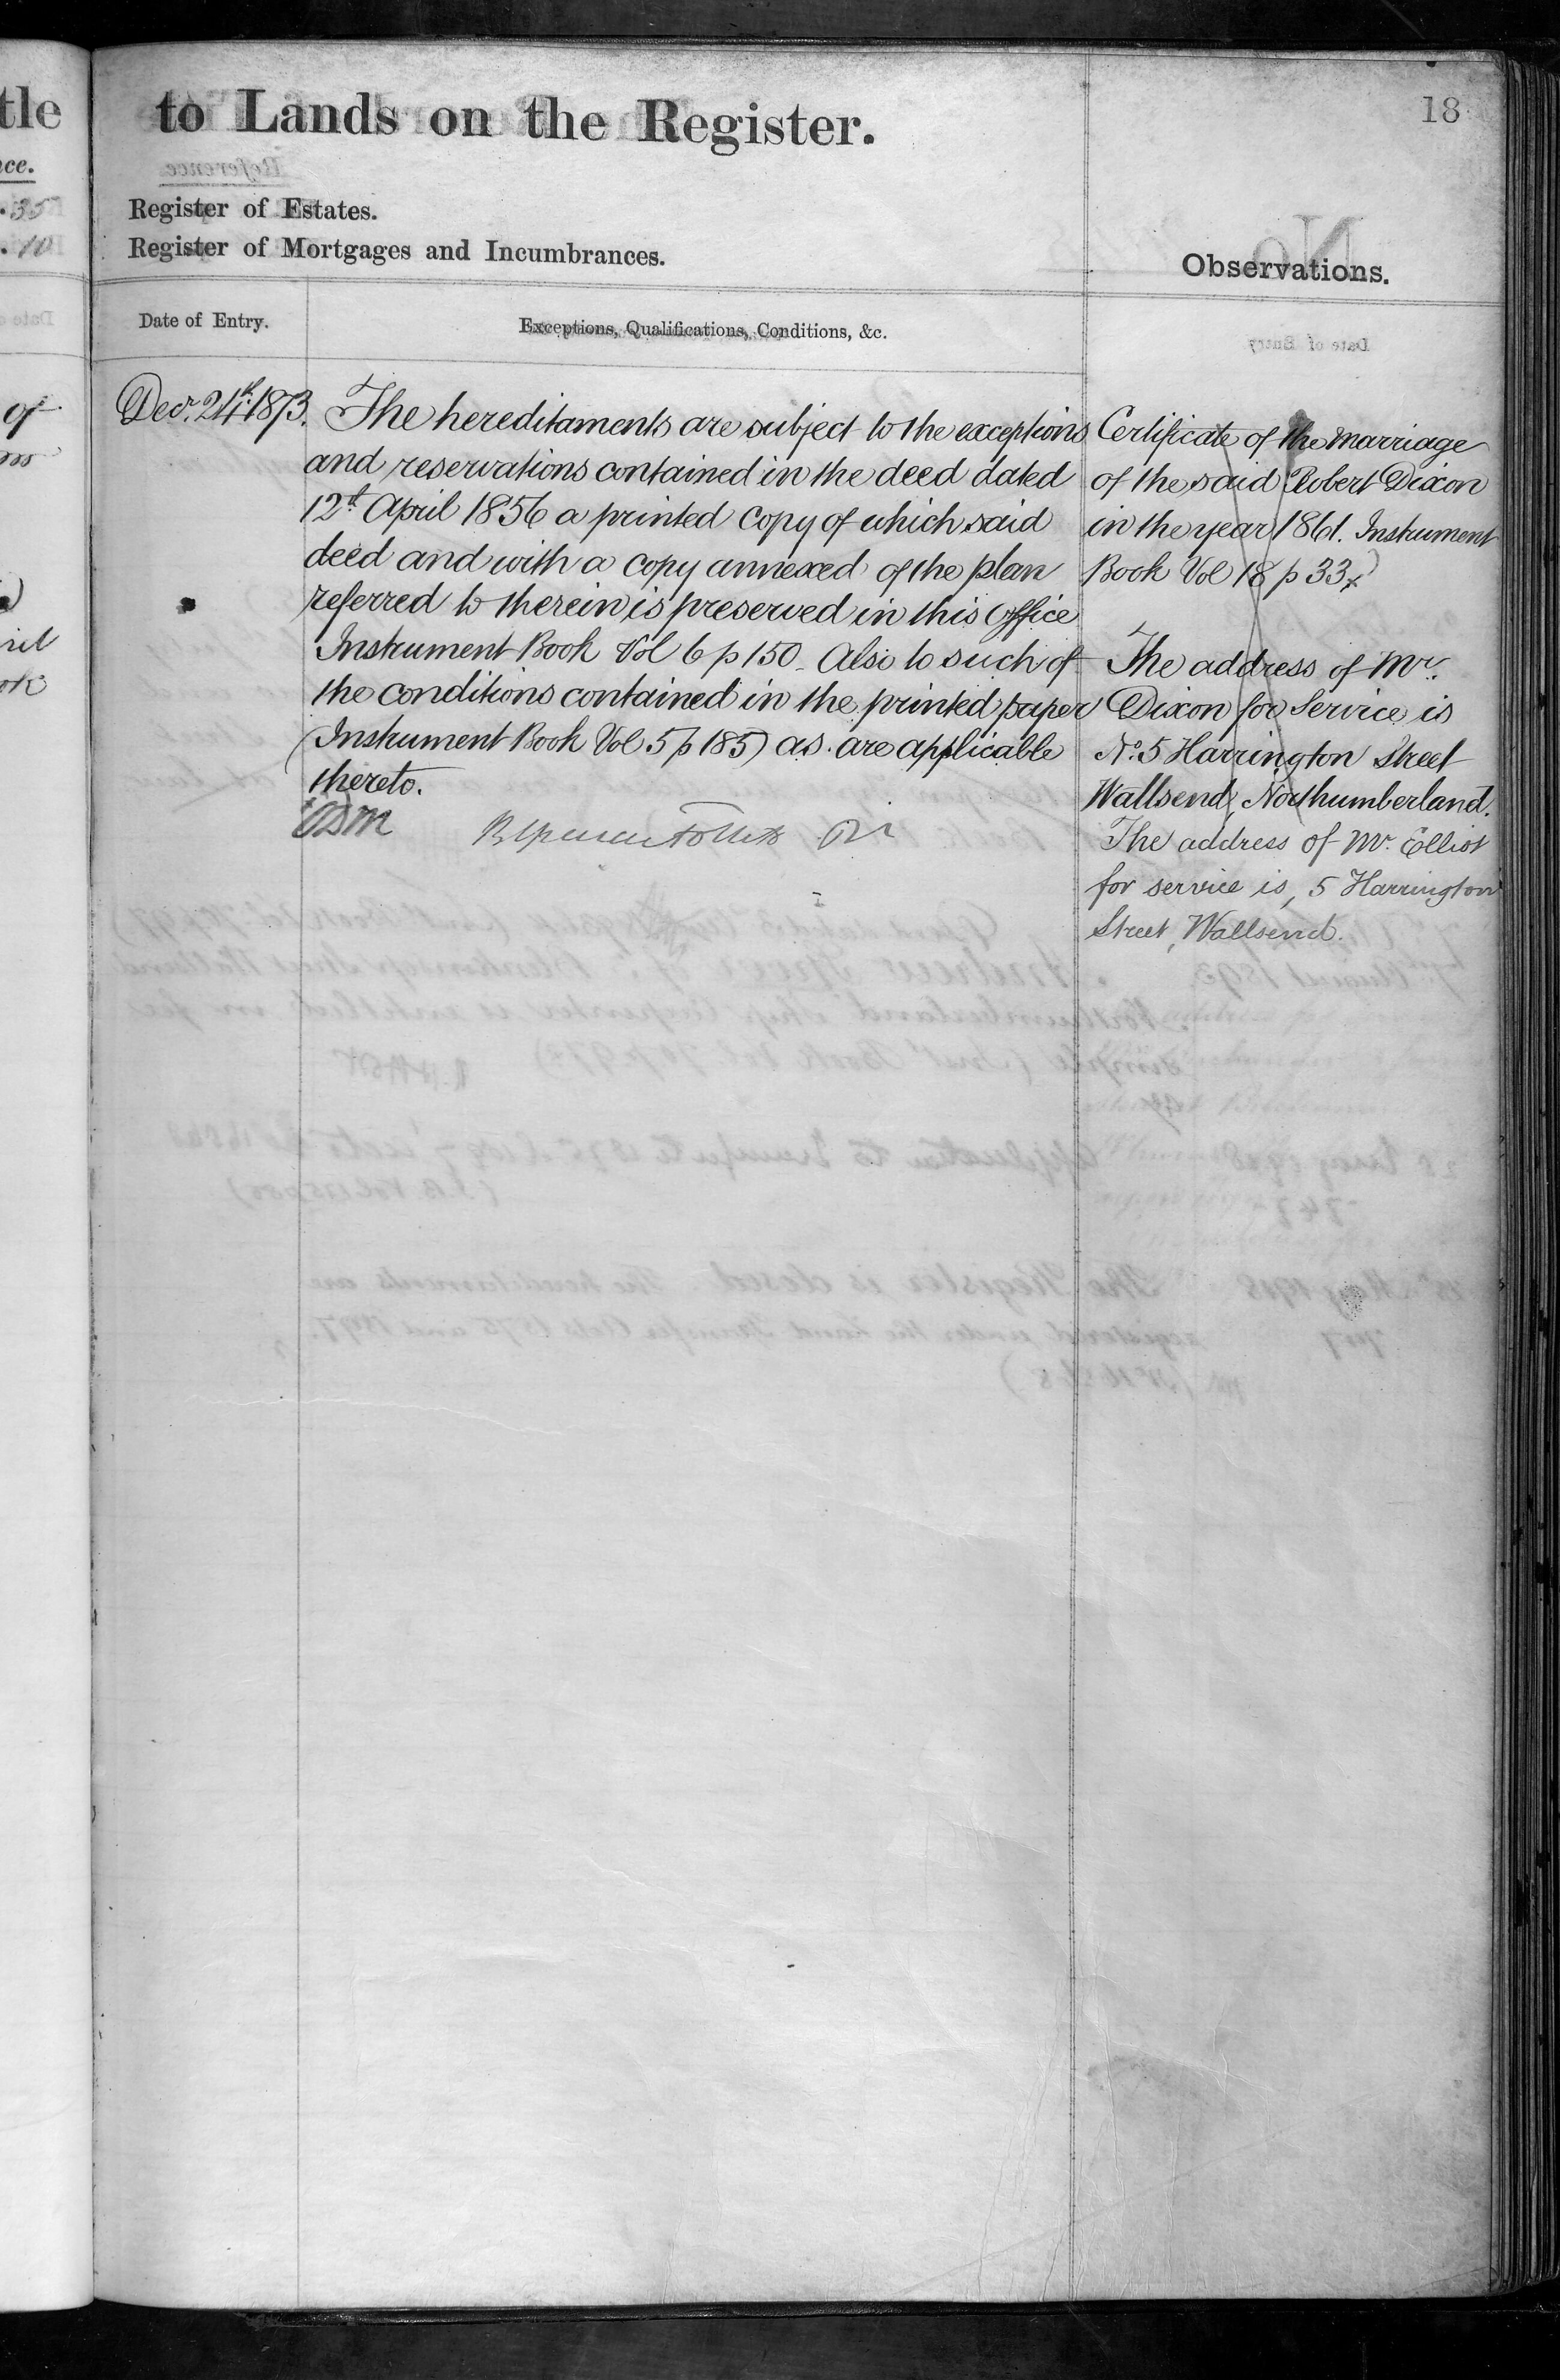 to Lands on the Register.
18
Register of Estates.
Register of Mortgages and Incumbrances.
Observations.
Date of Entry.
Exceptions, Qualifications, Conditions, &c.
Decr. 24th. 1873.
The hereditaments are subject to the exceptions
and reservations contained in the deed dated
12th April 1856 a printed Copy of which said
deed and with a copy annexed of the plan
referred to therein is preserved in this Office
Instrument Book Vol 6 p 150. Also to such of
the conditions contained in the printed paper
(Instrument Book Vol 5 p 185) as are applicable
thereto.
Certificate of the marriage
of the said Robert Dixon
in the year 1861. Instrument
Book Vol 18 p 33
The address of Mr.
Dixon for Service is
No. 5 Harrington Street
Wallsend, Northumberland.
The address of Mr. Elliot
for service is, 5 Harrington
Street, Wallsend.